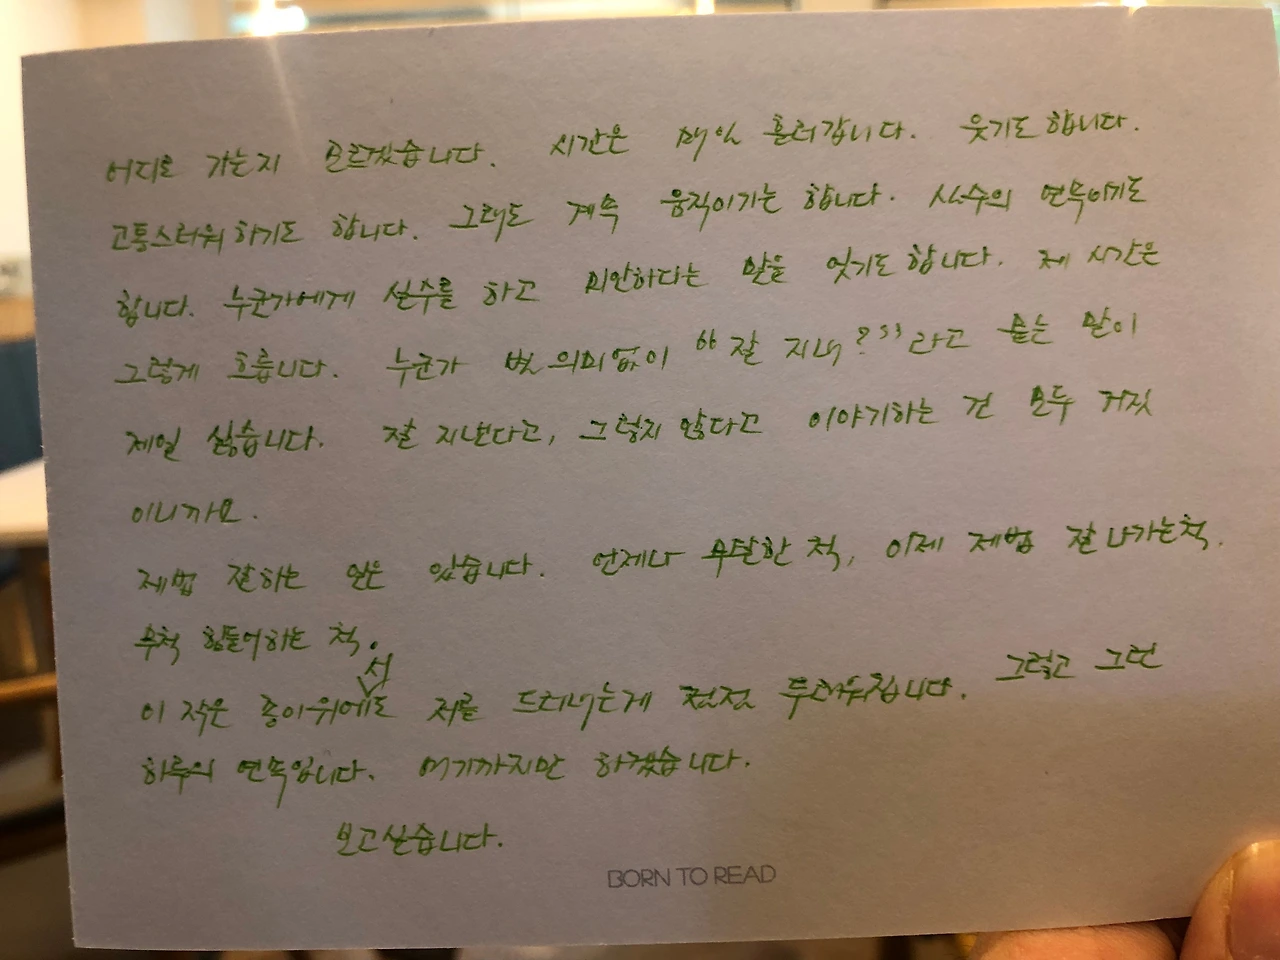 어디로 가는지 모르겠습니다. 시간은 매일 흘러갑니다. 웃기도 합니다.
고통스러워하기도 합니다. 그래도 계속 움직이기는 합니다. 실수의 연속이기도
합니다. 누군가에게 실수를 하고 미안하다는 말을 잊기도 합니다. 제 시간은
그렇게 흐릅니다. 누군가 별 의미없이 “잘 지내?”라고 묻는 말이
제일 싫습니다. 잘 지낸다고, 그렇지 않다고 이야기하는 건 모두 거짓
이니까요.
제법 잘하는 일은 있습니다. 언제나 무탈한 척, 이제 제법 잘 나가는 척.
무척 힘들어하는 척.
이 작은 종이위에서도 저를 드러내는게 점점 두려워집니다. 그렇고 그런
하루의 연속입니다. 여기까지만 하겠습니다.
보고싶습니다.
BORN TO READ